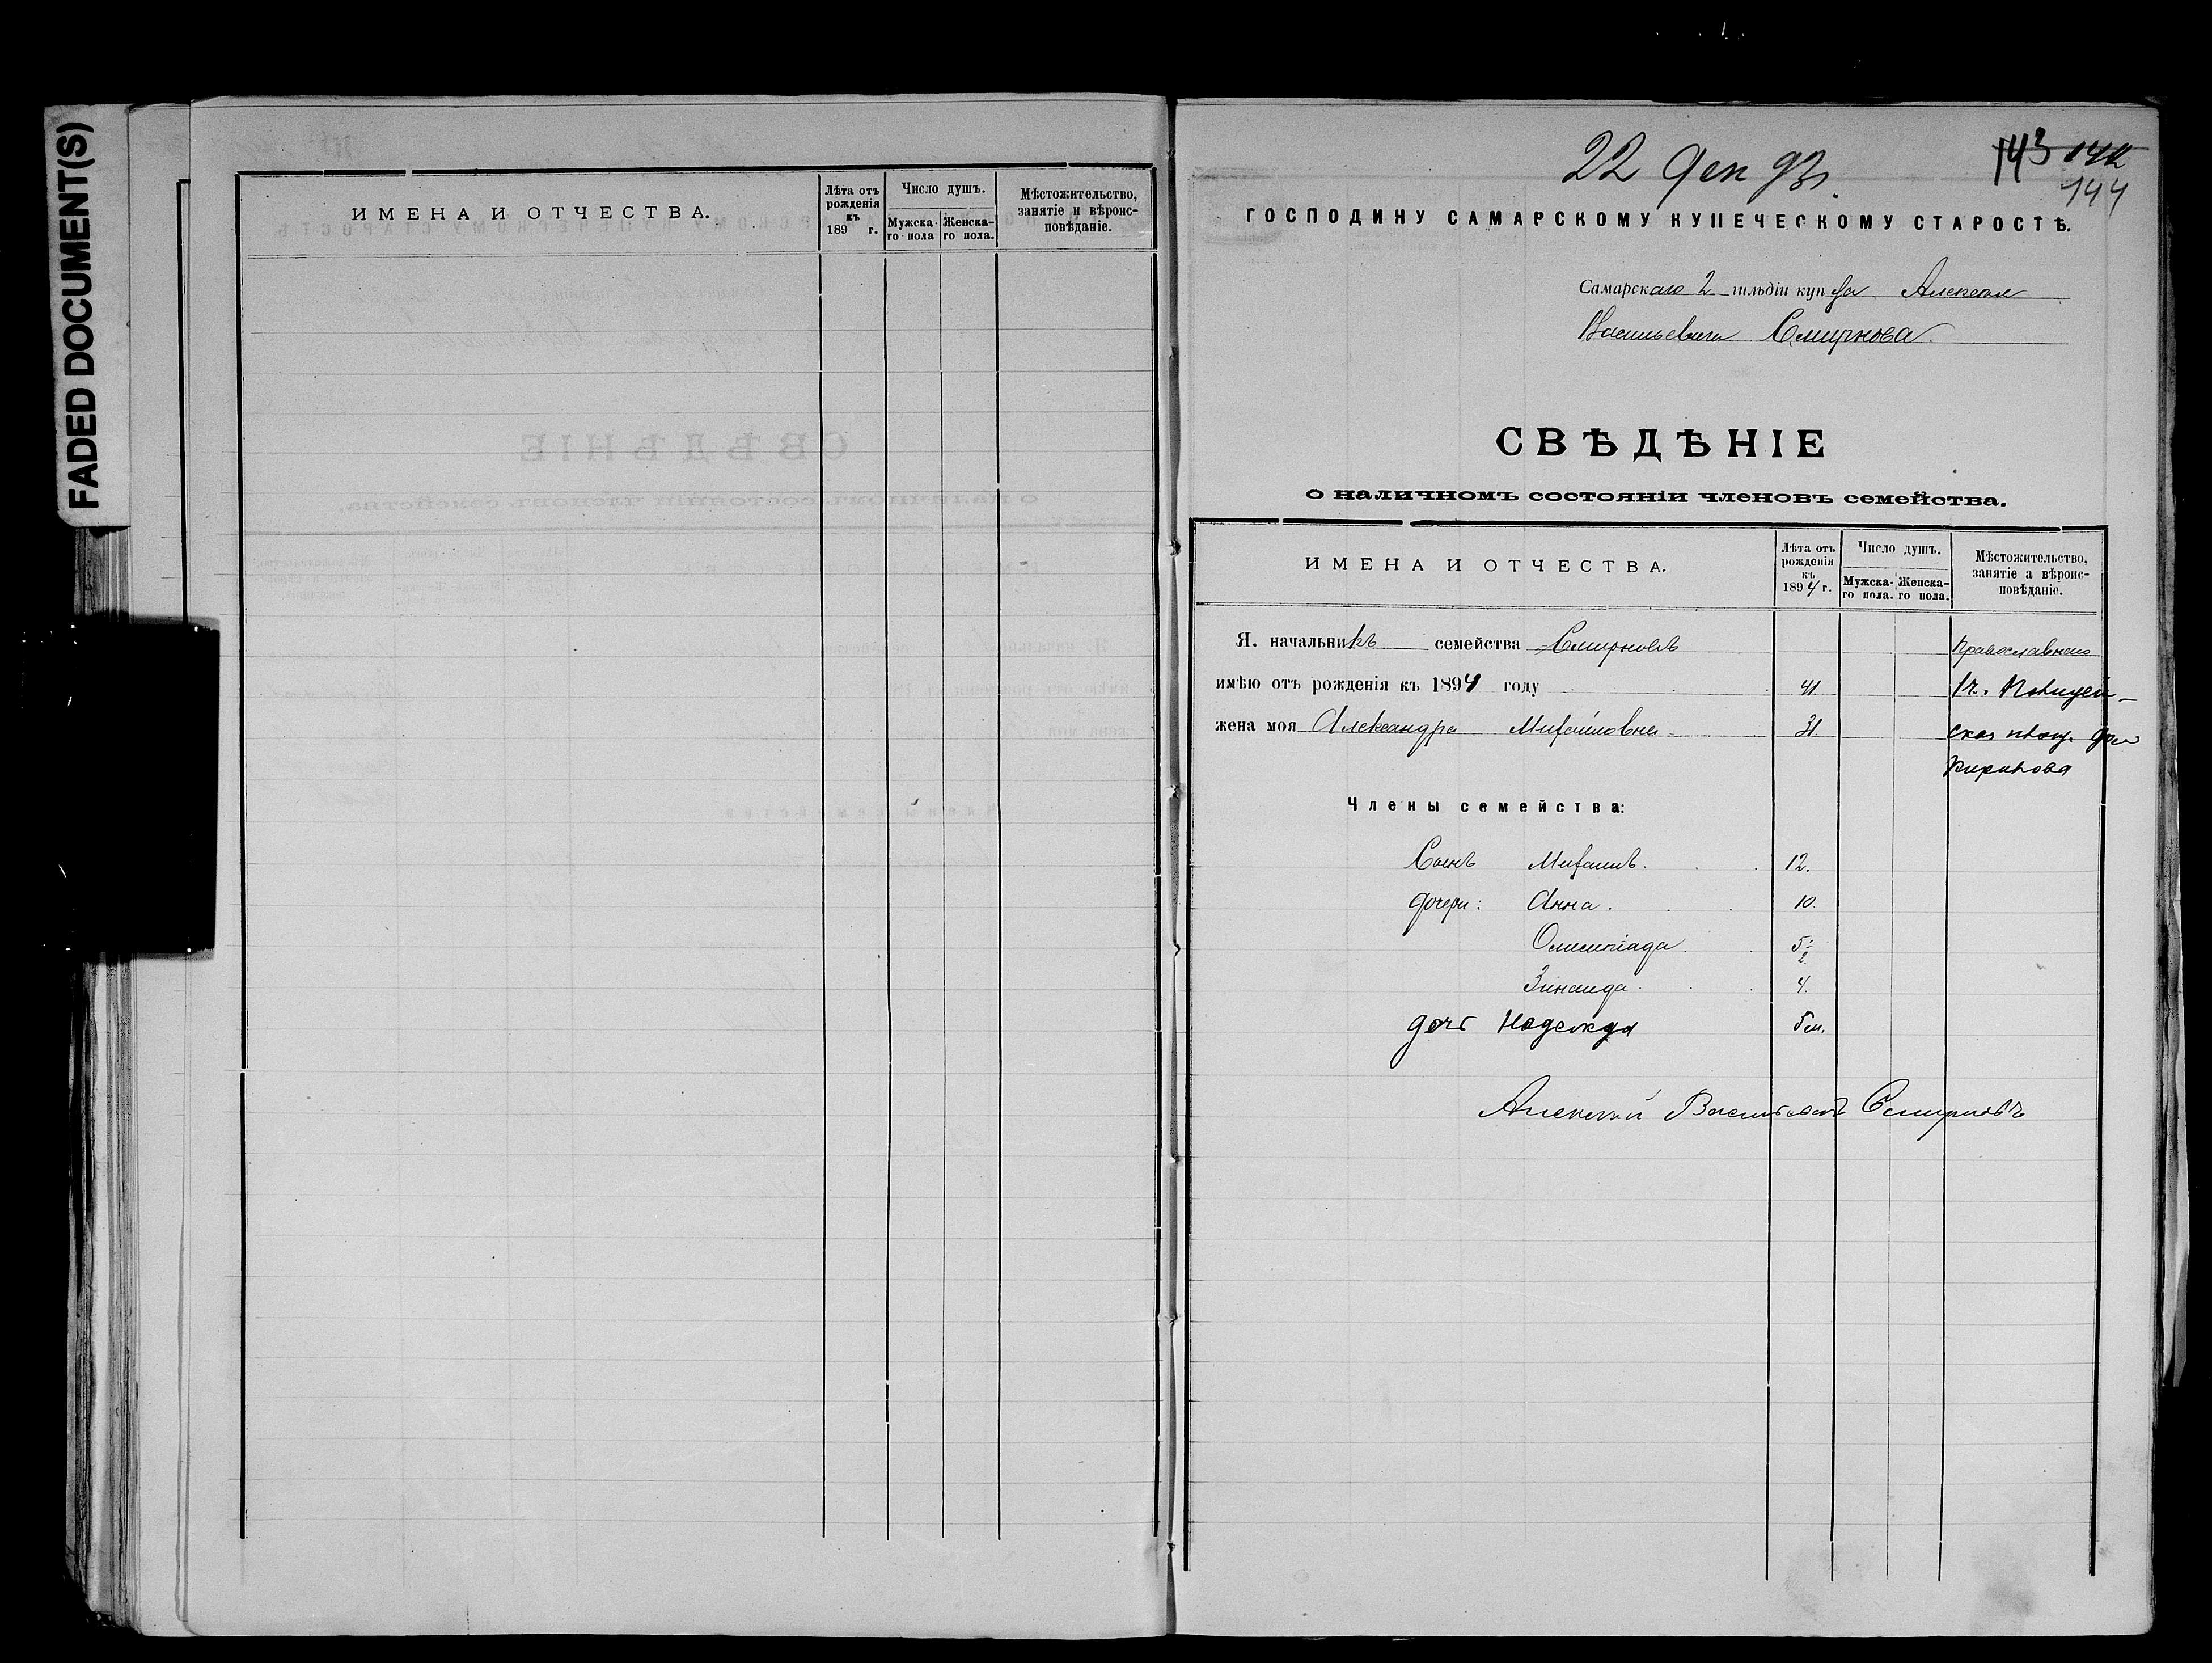 FADED DOCUMENT(S)
ИМЕНА И ОТЧЕСТВА.
Лѣта отъ рожденія къ 189 г.
Число душъ.
Мужска-го пола
Женска-го пола.
Мѣстожительство, занятіе и вѣроис-повѣданіе.
22 Дек 93 г.
143 142
144
ГОСПОДИНУ САМАРСКОМУ КУПЕЧЕСКОМУ СТАРОСТѢ.
Самарскаго 2 гильдіи купца Алексея
Васильевича Смирнова.
СВѢДѢНІЕ
о наличномъ состояніи членовъ семейства.
ИМЕНА И ОТЧЕСТВА.
Лѣта отъ рожденія къ 1894 г.
Число душъ.
Мужска-го пола.
Женска-го пола.
Мѣстожительство, занятіе а вѣроис-повѣданіе.
Я. начальникъ семейства Смирновъ Православнаго
имѣю отъ рожденія къ 1894 году 41 1 ч. Полицей-
жена моя Александра Михайловна 31. ская площ. дом
Кирилова
Члены семейства:
Сынъ Михаилъ. 12.
дочери: Анна. 10.
Олимпіада. 5
Зинаида. 4.
дочь Надежда 5 м.
Алексей Васильевъ Смирновъ